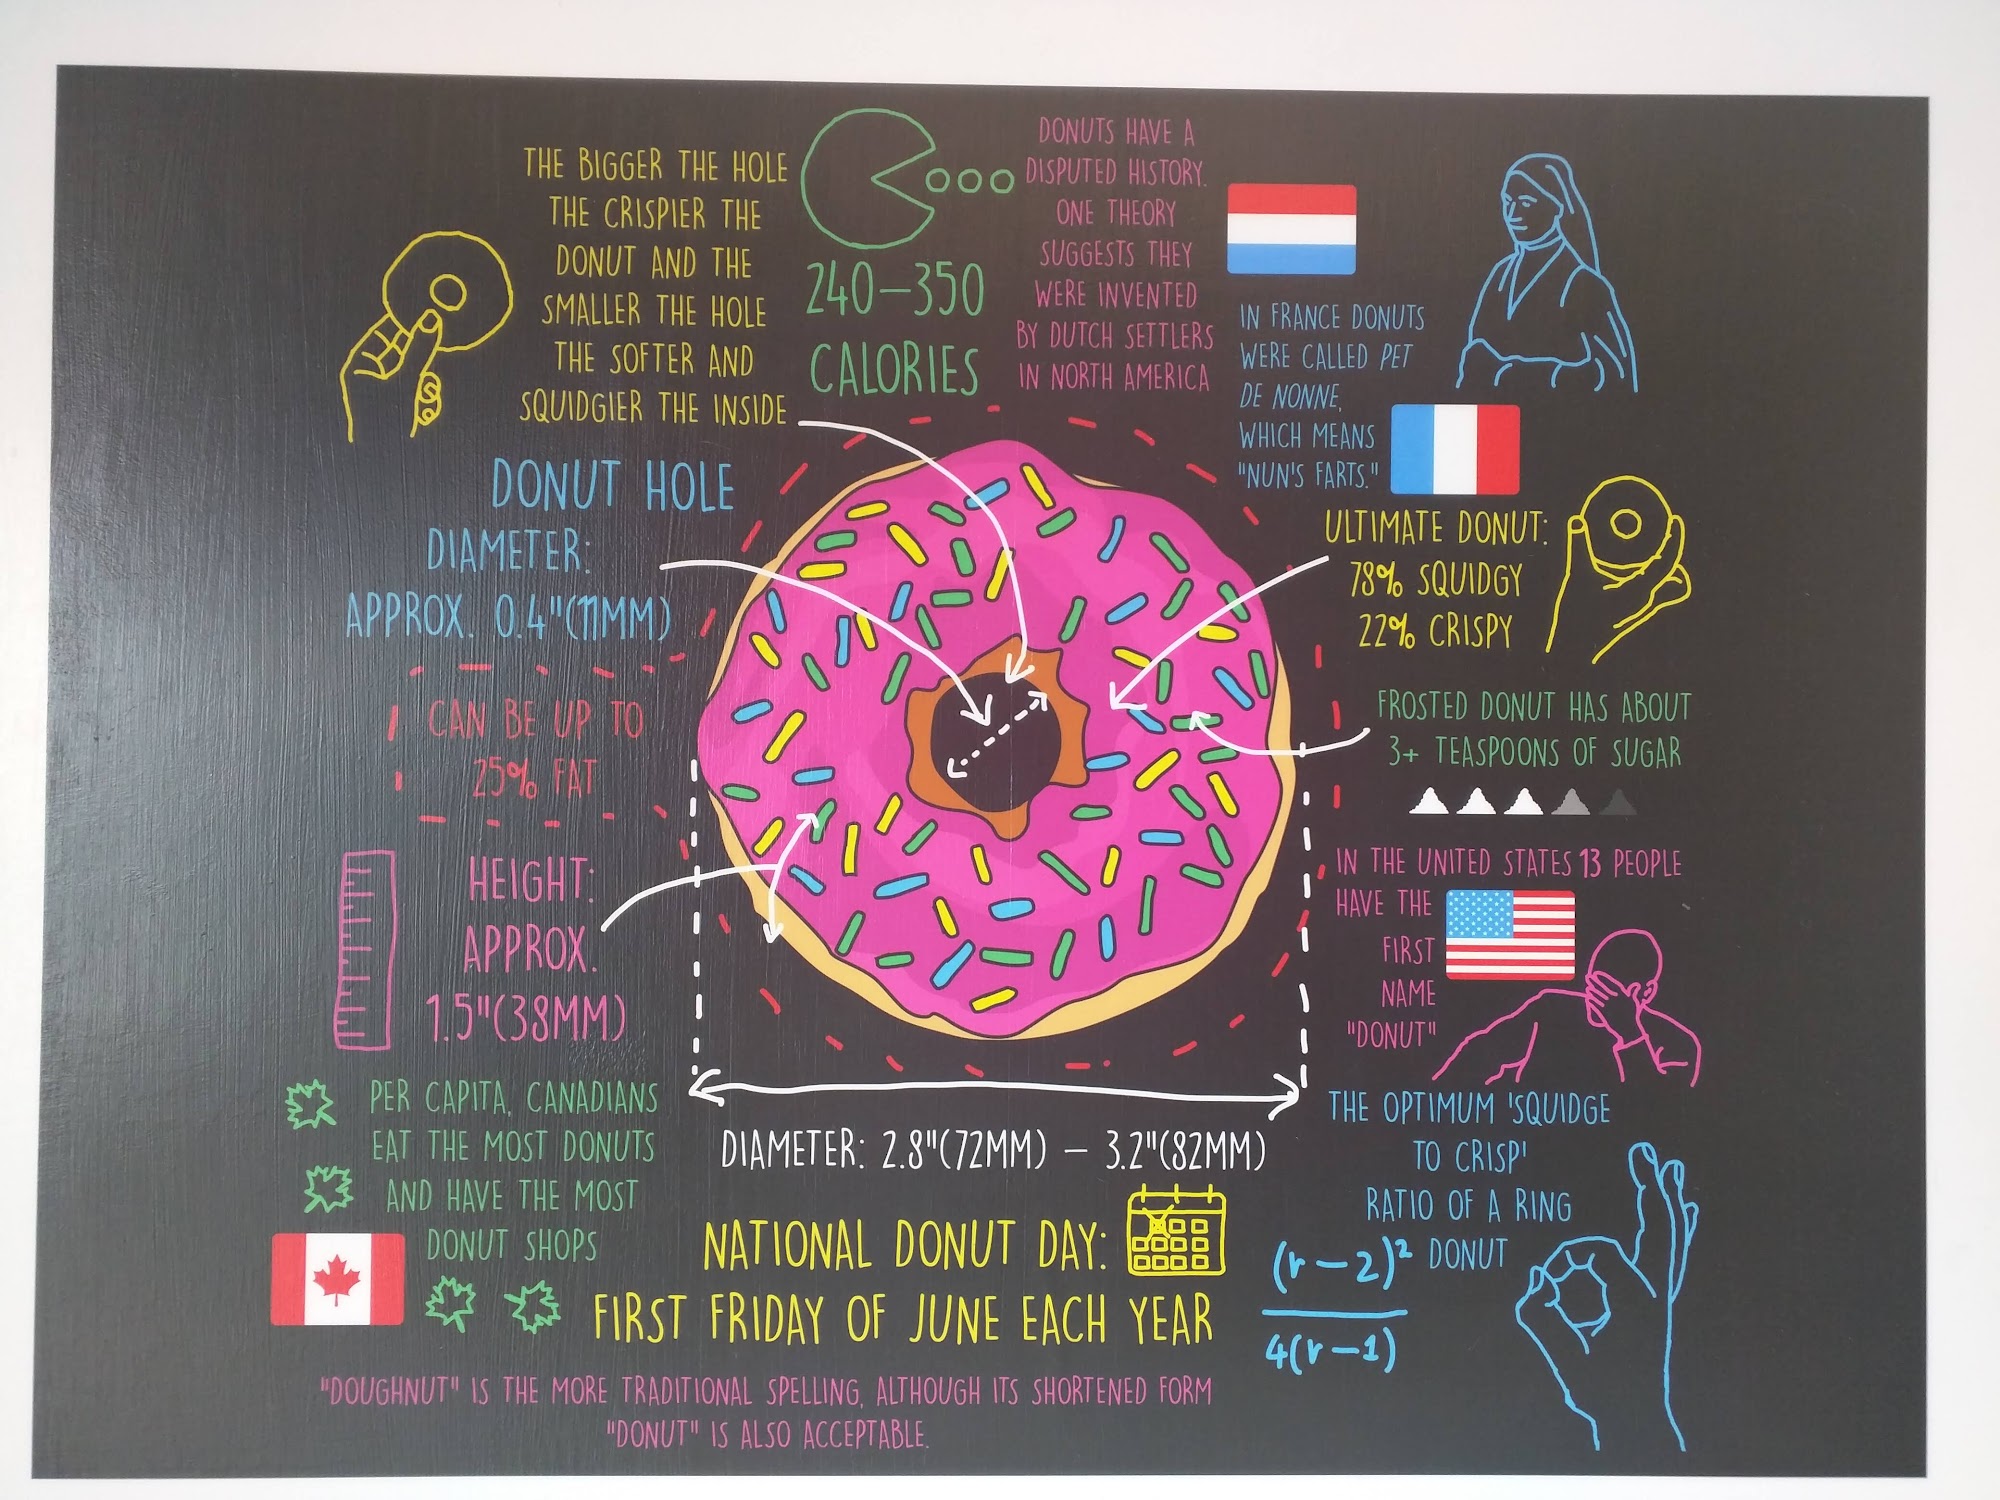 THE BIGGER THE HOLE
THE CRISPIER THE
DONUT AND THE
SMALLER THE HOLE
THE SOFTER AND
SQUIDGIER THE INSIDE
240–350
CALORIES
DONUTS HAVE A
DISPUTED HISTORY.
ONE THEORY
SUGGESTS THEY
WERE INVENTED
BY DUTCH SETTLERS
IN NORTH AMERICA
IN FRANCE DONUTS
WERE CALLED PET
DE NONNE,
WHICH MEANS
"NUN'S FARTS."
DONUT HOLE
DIAMETER:
APPROX. 0.4"(11MM)
ULTIMATE DONUT:
78% SQUIDGY
22% CRISPY
CAN BE UP TO
25% FAT
FROSTED DONUT HAS ABOUT
3+ TEASPOONS OF SUGAR
HEIGHT:
APPROX.
1.5"(38MM)
IN THE UNITED STATES 13 PEOPLE
HAVE THE
FIRST
NAME
"DONUT"
PER CAPITA, CANADIANS
EAT THE MOST DONUTS
AND HAVE THE MOST
DONUT SHOPS
DIAMETER: 2.8"(72MM) – 3.2"(82MM)
THE OPTIMUM 'SQUIDGE
TO CRISP'
RATIO OF A RING
DONUT
(r – 2)²
4(r – 1)
NATIONAL DONUT DAY:
FIRST FRIDAY OF JUNE EACH YEAR
"DOUGHNUT" IS THE MORE TRADITIONAL SPELLING, ALTHOUGH ITS SHORTENED FORM
"DONUT" IS ALSO ACCEPTABLE.